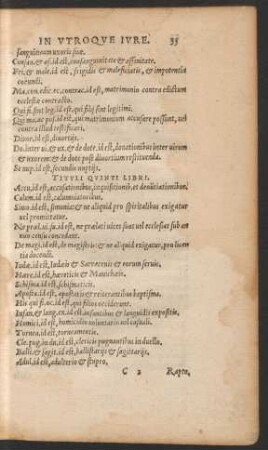 IN VTROQVE IVRE. 35
sanguineam uxoris suæ.
Consan. & af. id est, consanguinitate & affinitate.
Fri. & male. id est, frigidis & maleficiatis, & impotentia
coëundi.
Ma. con. edic. ec. contrac. id est, matrimonio contra edictum
ecclesiæ contracto.
Qui fi. sint leg. id est, qui filij sint legitimi.
Qui ma. ac. pos. id est, qui matrimonium accusare possunt, uel
contra illud testificari.
Diuor. id est, diuortijs.
Do. inter ui. & ux. & de dote. id est, donationibus inter uirum
& uxorem: & de dote post diuortium restituenda.
Se. nup. id est, secundis nuptijs.
TITVLI QVINTI LIBRI.
Accu. id est, accusationibus, inquisitionib. et denūciationibus.
Calum. id est, calumniatoribus.
Simo. id est, simonia: & ne aliquid pro spiritualibus exigatur
uel promittatur.
Ne præl. ui. su. id est, ne prælati uices suas uel ecclesias sub an
nuo censu concedant.
De magi. id est, de magistris: & ne aliquid exigatur, pro licen
tia docendi.
Iudæ. id est, Iudæis & Sarracenis & eorum seruis.
Hære. id est, hæreticis & Manichæis.
Schisma. id est, schismaticis.
Aposta. id est, apostatis & reiterantibus baptisma.
His qui fi. oc. id est, qui filios occiderunt.
Infan. & lang. ex. id est, infantibus & languidis expositis.
Homici. id est, homicidio uoluntario uel casuali.
Tornea. id est, torneamentis.
Cle. pug. in du. id est, clericis pugnantibus in duello.
Balli. & sagit. id est, ballistarijs & sagittarijs.
Adul. id est, adulterio & stupro.
C 3 Rapto.